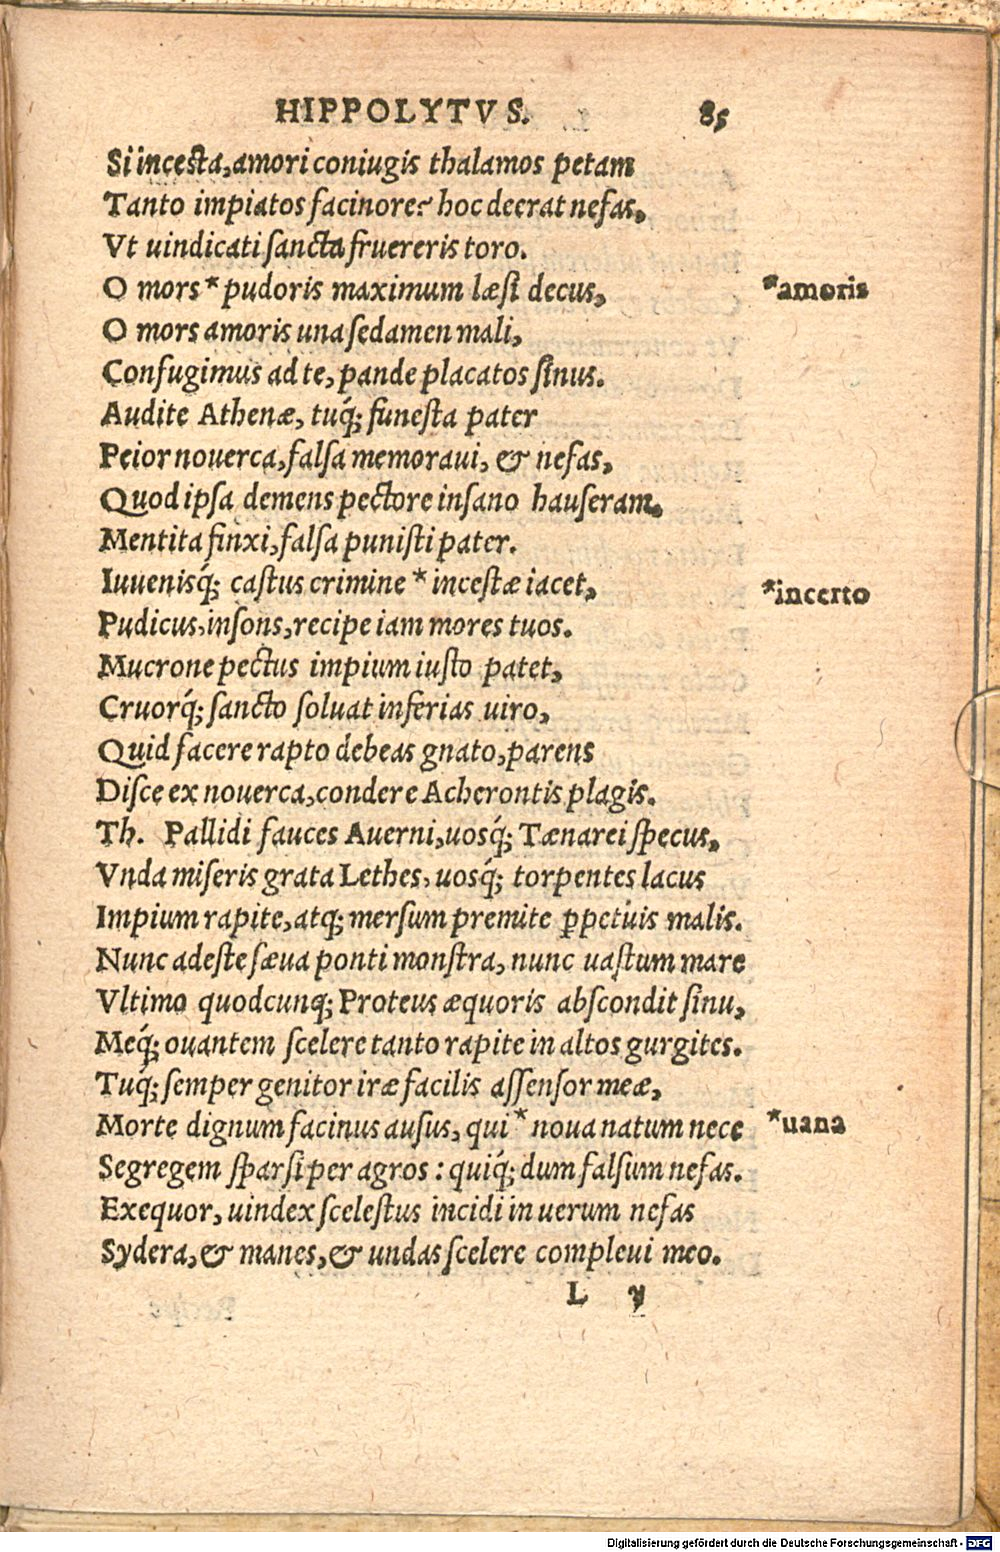 HIPPOLYTVS. 85
Si incesta, amori coniugis thalamos petam
Tanto impiatos facinore? hoc deerat nefas,
Vt uindicati sancta fruereris toro.
O mors * pudoris maximum læsi decus, *amoris
O mors amoris una sedamen mali,
Confugimus ad te, pande placatos sinus.
Audite Athenæ, tuq́; funesta pater
Peior nouerca, falsa memoraui, & nefas,
Quod ipsa demens pectore insano hauseram.
Mentita finxi, falsa punisti pater.
Iuuenisq́; castus crimine * incestæ iacet, *incerto
Pudicus, insons, recipe iam mores tuos.
Mucrone pectus impium iusto patet,
Cruorq́; sancto soluat inferias uiro,
Quid facere rapto debeas gnato, parens
Disce ex nouerca, condere Acherontis plagis.
Th. Pallidi fauces Auerni, uosq́; Tænarei specus,
Vnda miseris grata Lethes, uosq́; torpentes lacus
Impium rapite, atq; mersum premite ꝑpetuis malis.
Nunc adeste sæua ponti monstra, nunc uastum mare
Vltimo quodcunq; Proteus æquoris abscondit sinu,
Meq́; ouantem scelere tanto rapite in altos gurgites.
Tuq́; semper genitor iræ facilis assensor meæ,
Morte dignum facinus ausus, qui * noua natum nece *uana
Segregem sparsi per agros : quiq́; dum falsum nefas.
Exequor, uindex scelestus incidi in uerum nefas
Sydera, & manes, & undas scelere compleui meo.
L y
Digitalisierung gefördert durch die Deutsche Forschungsgemeinschaft - DFG